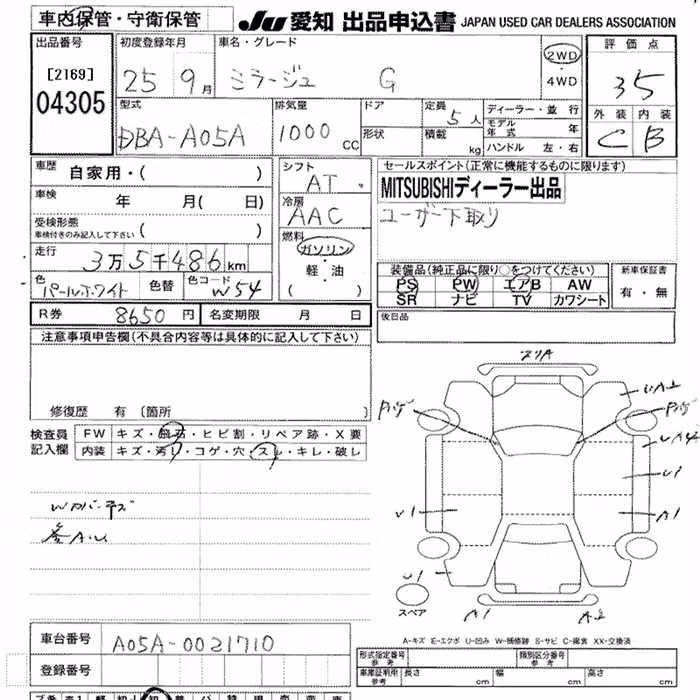 車内保管・守衛保管
JU 愛知 出品申込書 JAPAN USED CAR DEALERS ASSOCIATION
出品番号
[2169]
04305
初度登録年月
25 9月
車名・グレード
ミラージュ G
2WD
・
4WD
評価点
3.5
外装 内装
C B
型式
DBA-A05A
排気量
1000 CC
ドア
形状
定員 5人
積載 kg
ディーラー・並行
モデル年式 年
ハンドル 左・右
車歴 自家用・( )
車検 年 月( 日)
受検形態
車検付きのみ記入して下さい ( )
走行 3万5千486km
色 パールホワイト 色替 色コード W54
シフト
AT
冷房
AAC
燃料
ガソリン
・
軽・油
( )
セールスポイント(正常に機能するものに限ります)
MITSUBISHIディーラー出品
ユーザー下取り
装備品(純正品に限り○をつけてください)
PS PW エアB AW
SR ナビ TV カワシート
新車保証書
有・無
R券 8650円 名変期限 月 日
後日品
注意事項申告欄(不具合内容等は具体的に記入して下さい)
修復歴 有 (箇所 )
検査員
記入欄
FW キズ・飛石・ヒビ割・リペア跡・X要
内装 キズ・汚れ・コゲ・穴・スレ・キレ・破レ
スリA
UA2
U1
A1
スペア
A1
A2
A-キズ E-エクボ U-凹み W-補修跡 S-サビ C-腐食 XX-交換済
車台番号 A05A-0021710
登録番号
形式指定番号 参考
類別区分番号 参考
車庫証明所 参考 長さ cm 幅 cm 高さ cm